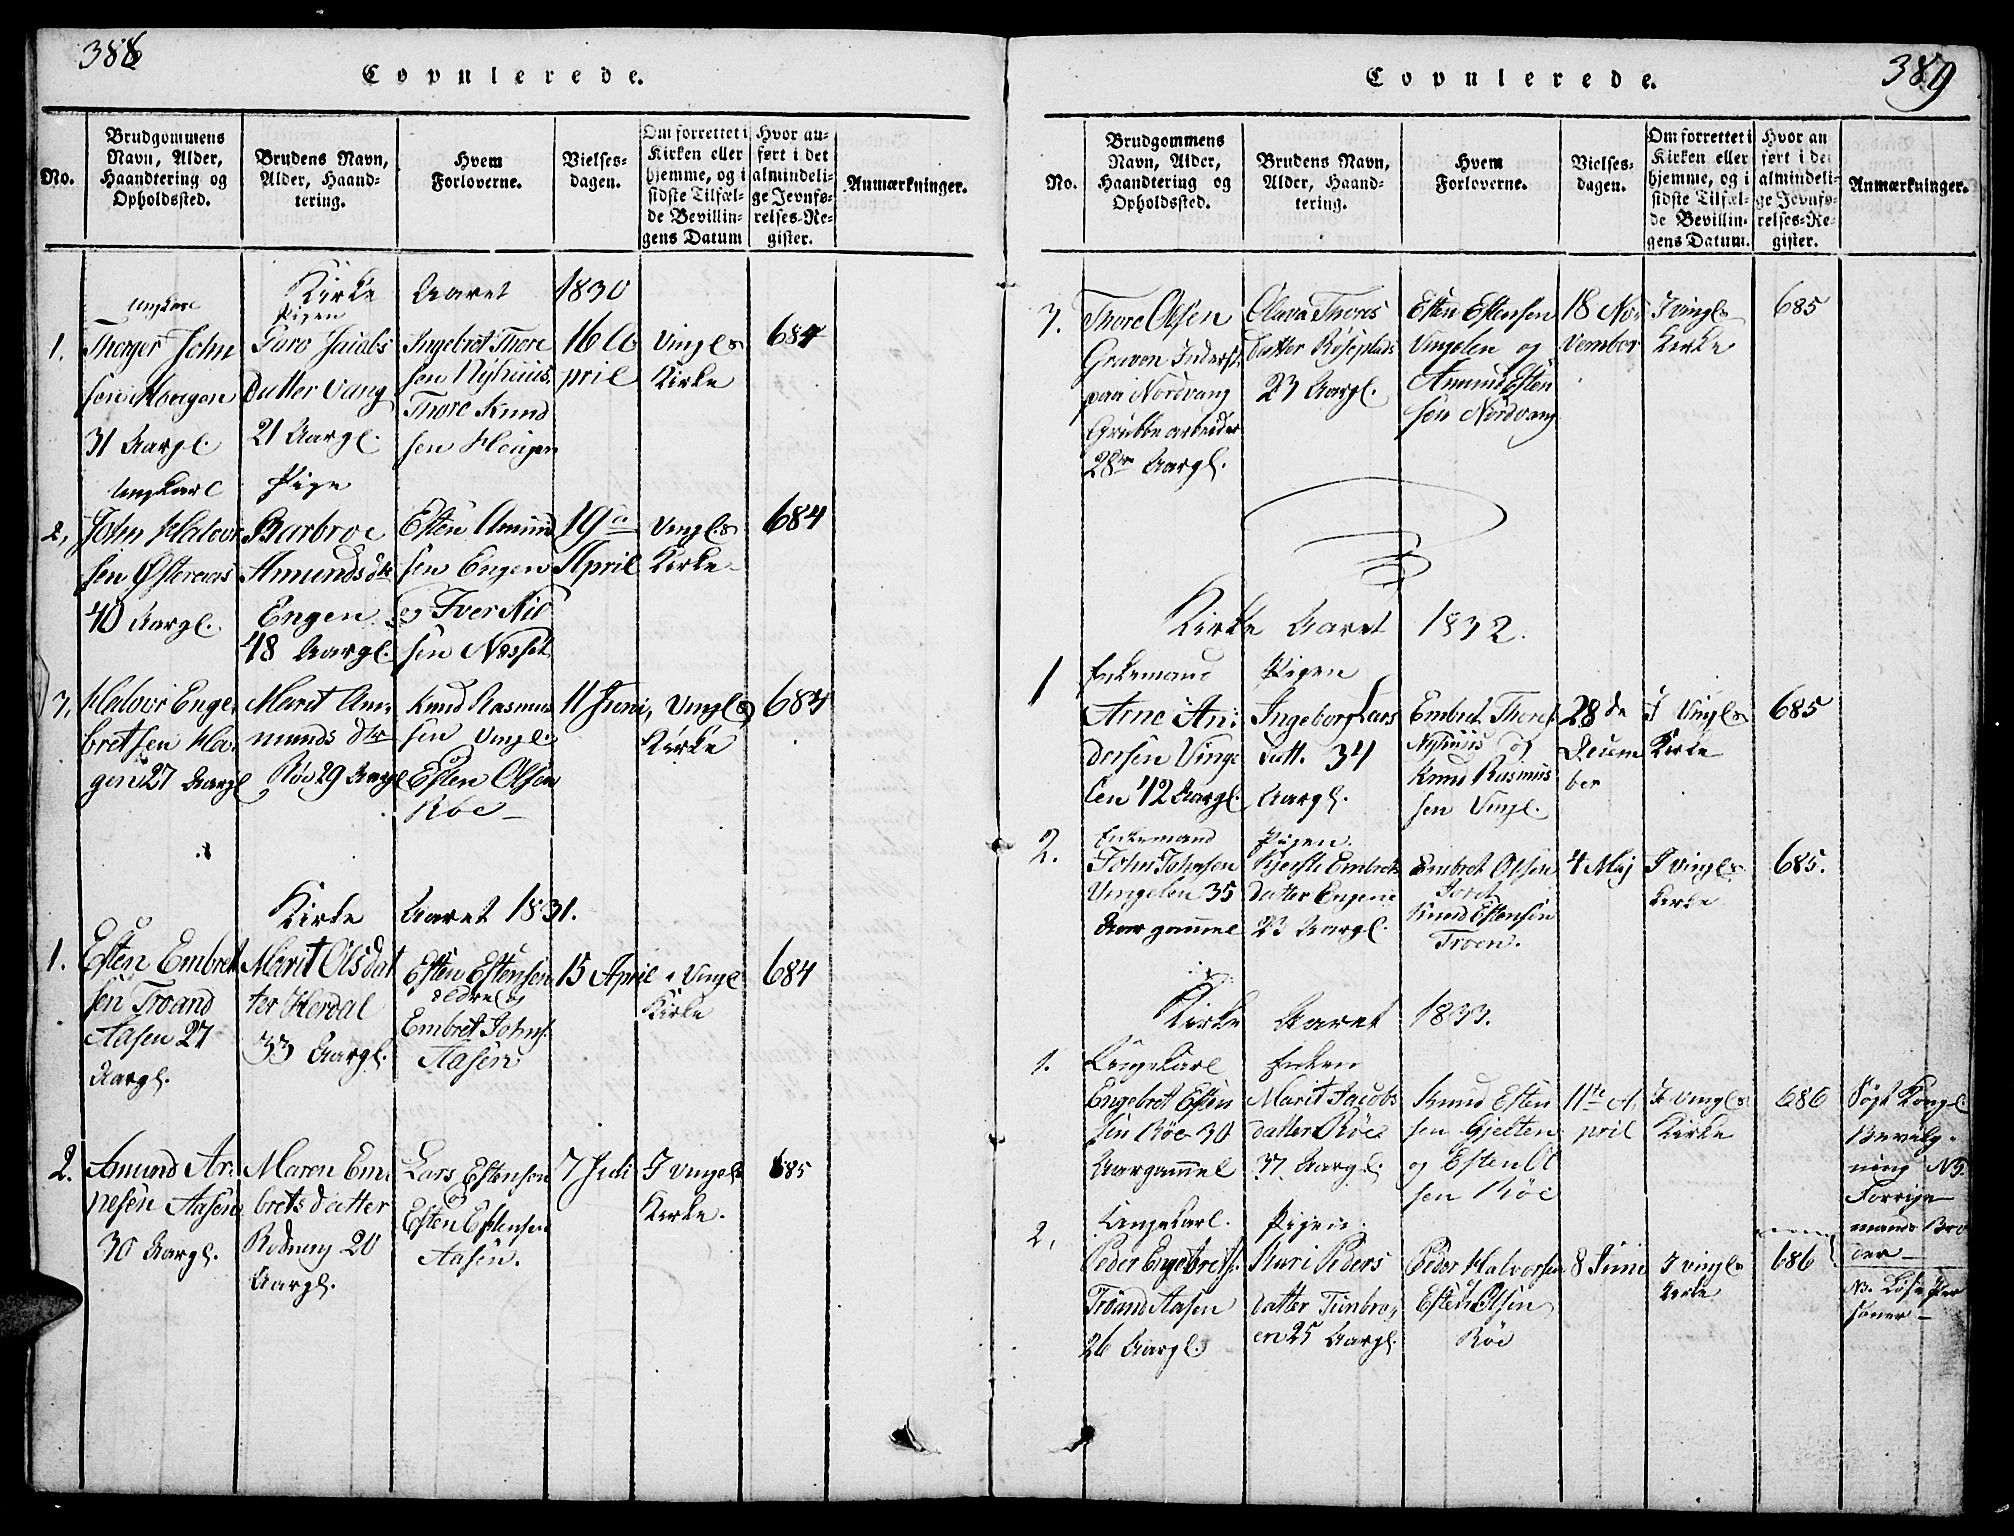 388
Copulerede.
No.
Brudgommens
Navn, Alder,
Haandtering og
Opholdssted.
Brudens Navn,
Alder, Haand-
tering.
Hvem
Forloverne.
Vielses-
dagen.
Om forrettet i
Kirken eller
hjemme, og i
sidste Tilfæl-
de Bevillin-
gens Datum
Hvor an-
ført i det
almindeli-
ge Jevnfø-
relses-Re-
gister.
Anmærkninger.
Kirke Aaret 1830
1.
Ungkarl
Thorger John
sen Haugen
31 Aargl.
Pigen
Guro Jacobs
Datter Vang
21 Aargl.
Ingebret Thore
sen Nyhuus
Thore Knud
sen Hougen
16 A
pril
Vingls
Kirke
684
2,
Ungkarl
John Halvor
sen Østeraas
40 Aargl.
Pige
Barbroe
Amunds dtr
Engen
48 Aargl.
Esten Amund
sen Engen
og Iver Nil
sen Næsset
19de
April
Vingls
Kirke
684
3,
Halvor Enge
bretsen Ha-
gen 27 Aargl
Marit Am-
munds dtr
Röe 29 Aargl
Knud Rasmus
sen Vingl.
Esten Olsen
Röe
11 Juni,
Vingls
Kirke
684
Kirke Aaret 1831.
1.
Esten Embret
sen Troand
Aasen 27
Aargl.
Marit Olsdat
ter Herdal
33 Aargl.
Esten Estensen
ældre og
Embret Johns.
Aasen
15 April
i Vingl
Kirke
684
2.
Amund Ar-
nesen Aasen
30 Aargl.
Maren Em
bretsdatter
Rodung 20
Aargl.
Lars Estensen
og
Esten Estensen
Aasen.
7 Juli
I Vingels
Kirke.
685
389
Copulerede.
No.
Brudgommens
Navn, Alder,
Haandtering og
Opholdssted.
Brudens Navn,
Alder, Haand-
tering.
Hvem
Forloverne.
Vielses-
dagen.
Om forrettet i
Kirken eller
hjemme, og i
sidste Tilfæl-
de Bevillin-
gens Datum.
Hvor an
ført i det
almindeli-
ge Jevnfø-
relses-Re-
gister.
Anmærkninger.
3.
Thore Olsen
Graven Inderst.
paa Nordvang
Grubbearbeider
28 Aargl.
Olava Thores
Datter Röseplads
23 Aargl.
Esten Estensen
Vingelen og
Amund Esten
sen Nordvang
18 No
vember
I vingls
Kirke
685
Kirke Aaret 1832.
1
Enkemand
Arne An-
dersen Vinge
len 42 Aargl.
Pigen
Ingeborg Lars
datt. 34
Aargl.
Embret Thores
Nyhuus og
Knud Rasmus
sen Vingl.
28de
Decem
ber
I Vingls
Kirke
685
2.
Enkemand
John Johnsen
Vingelen 35
Aar gammel
Pigen
Kjersti Embrets
datter Engene
23 Aargl.
Embret Olsen
Knud Estensen
Troen.
4 Maj
I vingls
Kirke
685.
Kirke Aaret 1833.
1.
Ungekarl
Engebret Esten
sen Röe 30
Aargammel
Enken
Marit Jacobs
datter Röe
37 Aargl.
Knud Esten
sen Gjelten
og Esten Ol
sen Röe
11te A
pril
I Vingls
Kirke
686
Søgt Kongl
Bevilg-
ning NB.
Forrige
mands Bro
der
2,
Ungekarl.
Peder Engebrets.
Troand Aasen
26 Aargl.
Pigen.
Kari Peders
datter Tunbro,
en 25 Aargl.
Peder Halvorsen
Esten Olsen
Röe
8 Juni
I vingls
Kirke
686
NB. Løse Per
soner